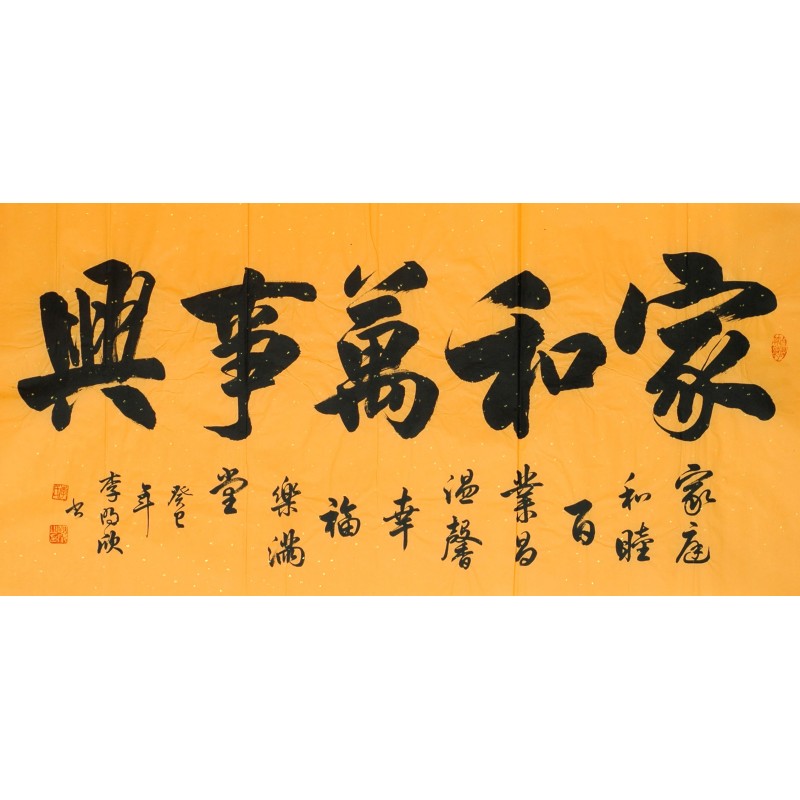 家和萬事興
家庭和睦百業昌
温馨幸福樂滿堂
癸巳年李明欣书